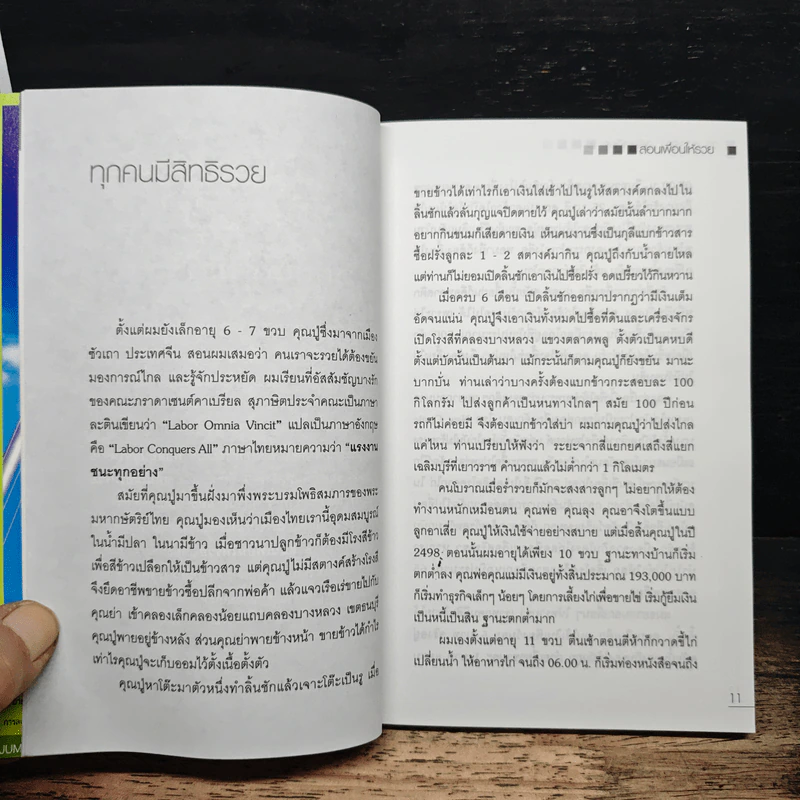 ทุกคนมีสิทธิรวย
ตั้งแต่ผมยังเล็กอายุ 6 - 7 ขวบ คุณปู่ซึ่งมาจากเมือง
ซัวเถา ประเทศจีน สอนผมเสมอว่า คนเราจะรวยได้ต้องขยัน
มองการณ์ไกล และรู้จักประหยัด ผมเรียนที่อัสสัมชัญบางรัก
ของคณะภราดาเซนต์คาเบรียล สุภาษิตประจำคณะเป็นภาษา
ละตินเขียนว่า “Labor Omnia Vincit” แปลเป็นภาษาอังกฤษ
คือ “Labor Conquers All” ภาษาไทยหมายความว่า “แรงงาน
ชนะทุกอย่าง”
สมัยที่คุณปู่มาขึ้นฝั่งมาพึ่งพระบรมโพธิสมภารของพระ
มหากษัตริย์ไทย คุณปู่มองเห็นว่าเมืองไทยเรานี้อุดมสมบูรณ์
ในน้ำมีปลา ในนามีข้าว เมื่อชาวนาปลูกข้าวก็ต้องมีโรงสีข้าว
เพื่อสีข้าวเปลือกให้เป็นข้าวสาร แต่คุณปู่ไม่มีสตางค์สร้างโรงสี
จึงยึดอาชีพขายข้าวซื้อปลีกจากพ่อค้า แล้วแจวเรือเร่ขายไปกับ
คุณย่า เข้าคลองเล็กคลองน้อยแถบคลองบางหลวง เขตธนบุรี
คุณปู่พายอยู่ข้างหลัง ส่วนคุณย่าพายข้างหน้า ขายข้าวได้กำไร
เท่าไรคุณปู่จะเก็บออมไว้ตั้งเนื้อตั้งตัว
คุณปู่หาโต๊ะมาตัวหนึ่งทำลิ้นชักแล้วเจาะโต๊ะเป็นรู เมื่อ
สอนเพื่อนให้รวย
ขายข้าวได้เท่าไรก็เอาเงินใส่เข้าไปในรูให้สตางค์ตกลงไปใน
ลิ้นชักแล้วลั่นกุญแจปิดตายไว้ คุณปู่เล่าว่าสมัยนั้นลำบากมาก
อยากกินขนมก็เสียดายเงิน เห็นคนงานซึ่งเป็นกุลีแบกข้าวสาร
ซื้อฝรั่งลูกละ 1 - 2 สตางค์มากิน คุณปู่ถึงกับน้ำลายไหล
แต่ท่านก็ไม่ยอมเปิดลิ้นชักเอาเงินไปซื้อฝรั่ง อดเปรี้ยวไว้กินหวาน
เมื่อครบ 6 เดือน เปิดลิ้นชักออกมาปรากฏว่ามีเงินเต็ม
อัดจนแน่น คุณปู่จึงเอาเงินทั้งหมดไปซื้อที่ดินและเครื่องจักร
เปิดโรงสีที่คลองบางหลวง แขวงตลาดพลู ตั้งตัวเป็นคหบดี
ตั้งแต่บัดนั้นเป็นต้นมา แม้กระนั้นก็ตามคุณปู่ก็ยังขยัน มานะ
บากบั่น ท่านเล่าว่าบางครั้งต้องแบกข้าวกระสอบละ 100
กิโลกรัม ไปส่งลูกค้าเป็นหนทางไกลๆ สมัย 100 ปีก่อน
รถก็ไม่ค่อยมี จึงต้องแบกข้าวใส่บ่า ผมถามคุณปู่ว่าไปส่งไกล
แค่ไหน ท่านเปรียบให้ฟังว่า ระยะจากสี่แยกยศเสถึงสี่แยก
เฉลิมบุรีที่เยาวราช คำนวณแล้วไม่ต่ำกว่า 1 กิโลเมตร
คนโบราณเมื่อร่ำรวยก็มักจะสงสารลูกๆ ไม่อยากให้ต้อง
ทำงานหนักเหมือนตน คุณพ่อ คุณลุง คุณอาจึงโตขึ้นแบบ
ลูกอาเสี่ย คุณปู่ให้เงินใช้จ่ายอย่างสบาย แต่เมื่อสิ้นคุณปู่ในปี
2498 ตอนนั้นผมอายุได้เพียง 10 ขวบ ฐานะทางบ้านก็เริ่ม
ตกต่ำลง คุณพ่อคุณแม่มีเงินอยู่ทั้งสิ้นประมาณ 193,000 บาท
ก็เริ่มทำธุรกิจเล็กๆ น้อยๆ โดยการเลี้ยงไก่เพื่อขายไข่ เริ่มกู้ยืมเงิน
เป็นหนี้เป็นสิน ฐานะตกต่ำมาก
ผมเองตั้งแต่อายุ 11 ขวบ ตื่นเช้าตอนตีห้าก็กวาดขี้ไก่
เปลี่ยนน้ำ ให้อาหารไก่ จนถึง 06.00 น. ก็เริ่มท่องหนังสือจนถึง
11